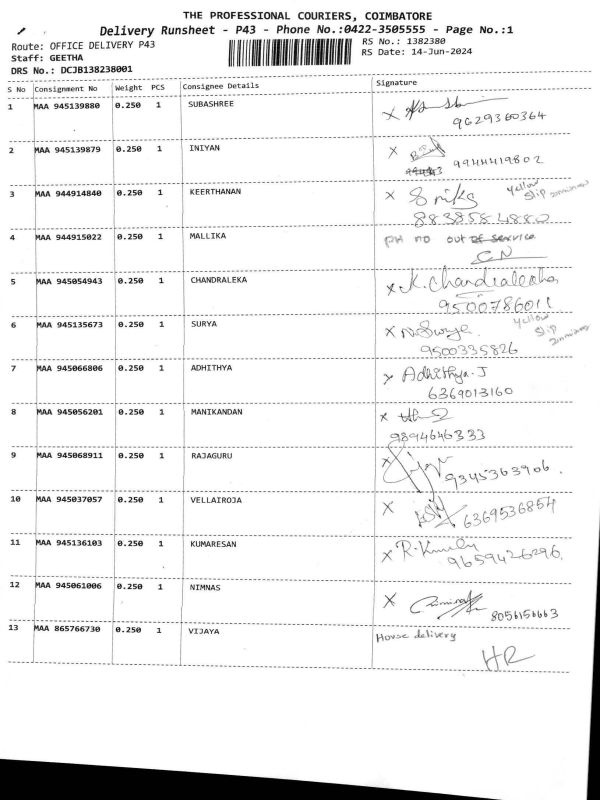 THE PROFESSIONAL COURIERS, COIMBATORE
Delivery Runsheet - P43 - Phone No.:0422-3505555 - Page No.:1
Route: OFFICE DELIVERY P43
RS No.: 1382380
Staff: GEETHA
RS Date: 14-Jun-2024
DRS No.: DCJB138238001
S No Consignment No Weight PCS Consignee Details Signature
1 MAA 945139880 0.250 1 SUBASHREE X
9629360364
2 MAA 945139879 0.250 1 INIYAN X
9944419802
3 MAA 944914840 0.250 1 KEERTHANAN X Yellow
Slip
8838584880
4 MAA 944915022 0.250 1 MALLIKA PH no out of service
CN
5 MAA 945054943 0.250 1 CHANDRALEKA X K. Chandraleaha
9500786011
6 MAA 945135673 0.250 1 SURYA X N Surya Yellow
Slip
9500335826
7 MAA 945066806 0.250 1 ADHITHYA X Adhithya.J
6369013160
8 MAA 945056201 0.250 1 MANIKANDAN X
9894646333
9 MAA 945068911 0.250 1 RAJAGURU X
9345363906.
10 MAA 945037057 0.250 1 VELLAIROJA X
6369536854
11 MAA 945136103 0.250 1 KUMARESAN X R.
9659426296.
12 MAA 945061006 0.250 1 NIMNAS X
8056156663
13 MAA 865766730 0.250 1 VIJAYA House delivery
HR